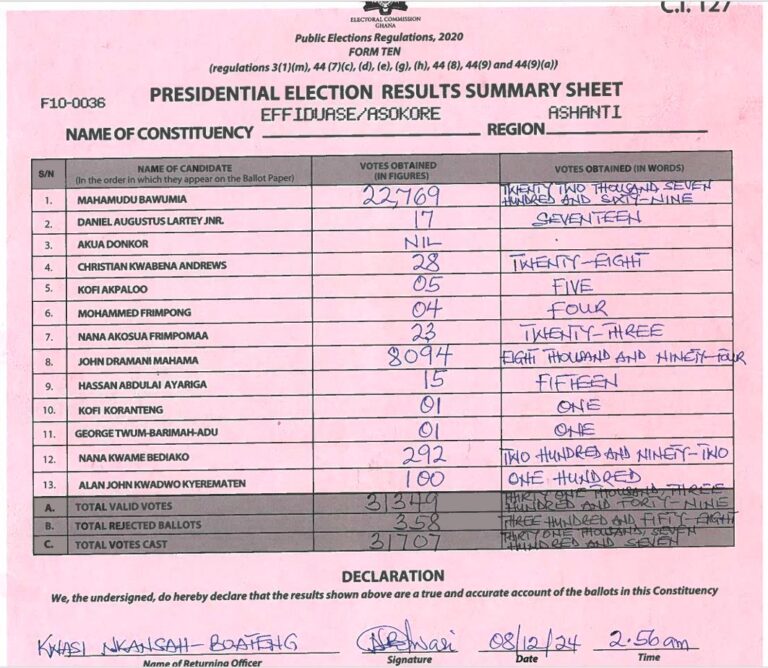 C.I. 127
ELECTORAL COMMISSION
GHANA
Public Elections Regulations, 2020
FORM TEN
(regulations 3(1)(m), 44 (7)(c), (d), (e), (g), (h), 44 (8), 44(9) and 44(9)(a))
PRESIDENTIAL ELECTION RESULTS SUMMARY SHEET
F10-0036
NAME OF CONSTITUENCY EFFIDUASE/ASOKORE REGION ASHANTI
S/N NAME OF CANDIDATE (In the order in which they appear on the Ballot Paper) VOTES OBTAINED (IN FIGURES) VOTES OBTAINED (IN WORDS)
1. MAHAMUDU BAWUMIA 22,769 TWENTY TWO THOUSAND SEVEN HUNDRED AND SIXTY-NINE
2. DANIEL AUGUSTUS LARTEY JNR. 17 SEVENTEEN
3. AKUA DONKOR NIL
4. CHRISTIAN KWABENA ANDREWS 28 TWENTY-EIGHT
5. KOFI AKPALOO 05 FIVE
6. MOHAMMED FRIMPONG 04 FOUR
7. NANA AKOSUA FRIMPOMAA 23 TWENTY-THREE
8. JOHN DRAMANI MAHAMA 8094 EIGHT THOUSAND AND NINETY-FOUR
9. HASSAN ABDULAI AYARIGA 15 FIFTEEN
10. KOFI KORANTENG 01 ONE
11. GEORGE TWUM-BARIMAH-ADU 01 ONE
12. NANA KWAME BEDIAKO 292 TWO HUNDRED AND NINETY-TWO
13. ALAN JOHN KWADWO KYEREMATEN 100 ONE HUNDRED
A. TOTAL VALID VOTES 31349 THIRTY ONE THOUSAND THREE HUNDRED AND FORTY-NINE
B. TOTAL REJECTED BALLOTS 358 THREE HUNDRED AND FIFTY-EIGHT
C. TOTAL VOTES CAST 31707 THIRTY ONE THOUSAND, SEVEN HUNDRED AND SEVEN
DECLARATION
We, the undersigned, do hereby declare that the results shown above are a true and accurate account of the ballots in this Constituency
KWASI NKANSAH-BOATENG 08/12/24 2:56am
Name of Returning Officer Signature Date Time